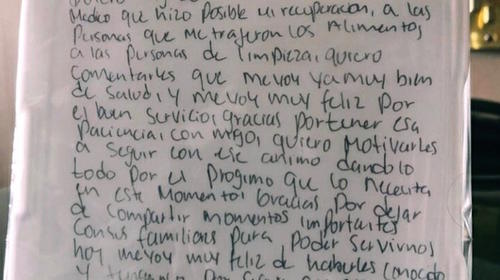 Medico que hizo posible mi recuperacion, a las
Personas que me trajeron los Alimentos
a las Personas de limpieza, quiero
comentarles que mevoy ya muy bien
de Salud, y mevoy muy feliz Por
el buen servicio, gracias portener esa
Paciencia, con migo, quiero Motivarles
a Seguir con ese animo dandolo
todo Por el Progimo que lo necesita
en este Momento. Gracias Por dejar
de compartir momentos importantes
consus familias para poder servirnos
hoy mevoy muy feliz de haberles conocido
y